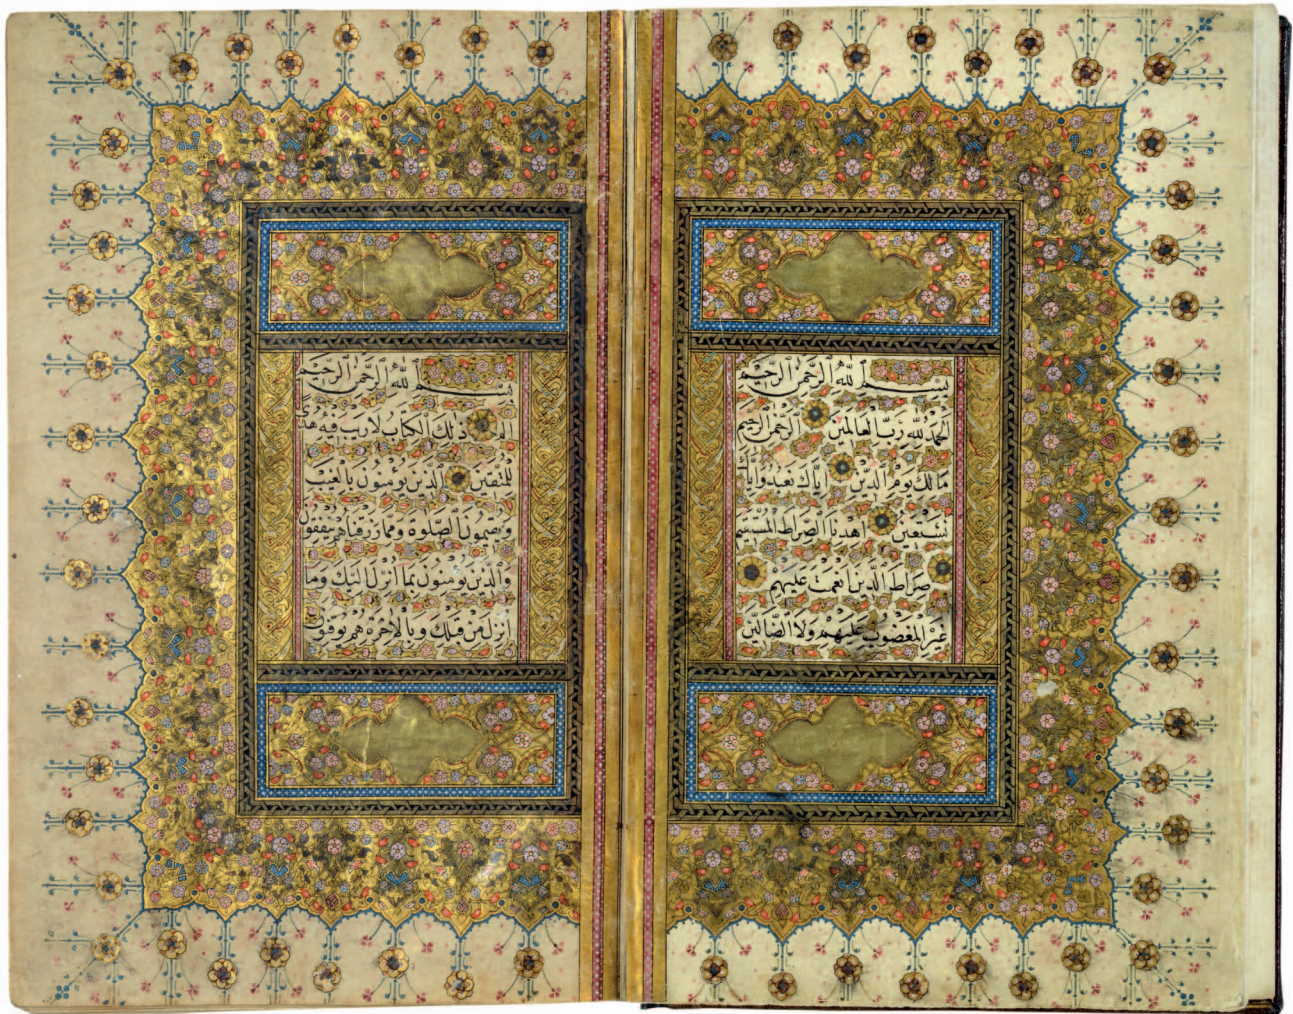 بسم ٱللّٰه الرحمن الرحيم
الحمد لله رب العالمين الرحمن الرحيم
مالك يوم الدين اياك نعبد واياك
نستعين اهدنا الصراط المستقيم
صراط الذين انعمت عليهم
غير المغضوب عليهم ولا الضالين
بسم ٱللّٰه الرحمن الرحيم
الم ذلك الكتاب لا ريب فيه هدى
للمتقين الذين يؤمنون بالغيب
ويقيمون الصلوة ومما رزقناهم ينفقون
والذين يؤمنون بما انزل اليك وما
انزل من قبلك وبالاخرة هم يوقنون